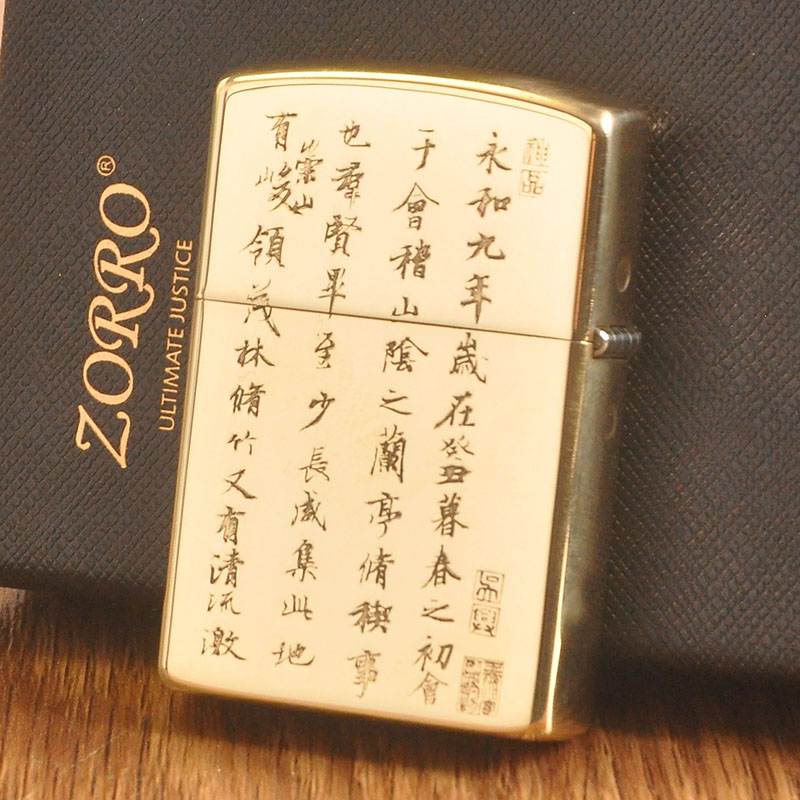 永和九年歲在癸丑暮春之初會
于會稽山陰之蘭亭脩稧事
也羣賢畢至少長咸集此地
有崇山峻領茂林脩竹又有清流激
ZORRO®
ULTIMATE JUSTICE